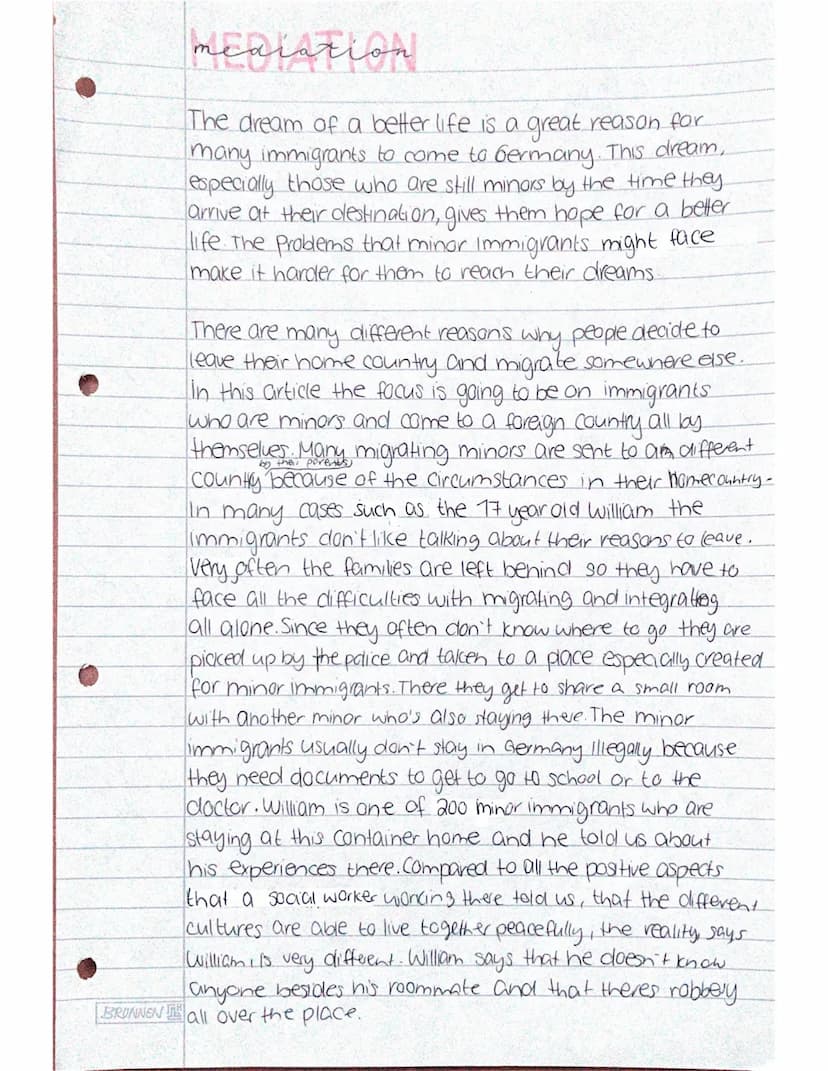 MEDIATION
mediation
The dream of a better life is a great reason for
many immigrants to come to Germany. This dream,
especially those who are still minors by the time they
arrive at their destination, gives them hope for a better
life. The Problems that minor Immigrants might face
make it harder for them to reach their dreams.
There are many different reasons why people decide to
leave their home country and migrate somewhere else.
In this article the focus is going to be on immigrants
who are minors and come to a foreign country all by
themselves. Many migrating minors are sent to a different
by their parents
country because of the circumstances in their Homecountry.
In many cases such as the 17 year old William the
immigrants don't like talking about their reasons to leave.
Very often the families are left behind so they have to
face all the difficulties with migrating and integrating
all alone. Since they often don't know where to go they are
picked up by the police and taken to a place especially created
for minor immigrants. There they get to share a small room
with another minor who's also staying there. The minor
immigrants usually don't stay in Germany Illegaly because
they need documents to get to go to school or to the
doctor. William is one of 200 minor immigrants who are
staying at this container home and he told us about
his experiences there. Compared to all the positive aspects
that a social worker working there told us, that the different
cultures are able to live together peacefully, the reality, says
William, is very different. William says that he doesn't know
anyone besides his roommate and that theres robbery
BRUNNEN all over the place.